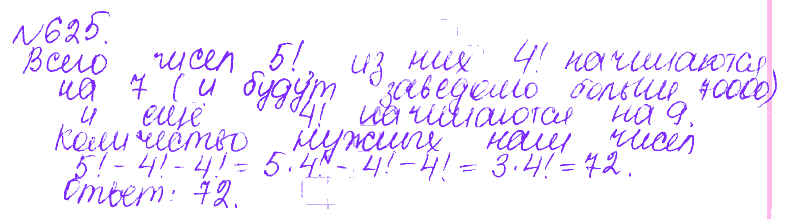 №625.
Всего чисел 5!, из них 4! начинаются
на 7 (и будут заведомо больше 70000)
и ещё 4! начинаются на 9.
Количество нужных нам чисел
5! - 4! - 4! = 5·4! - 4! - 4! = 3·4! = 72.
Ответ: 72.